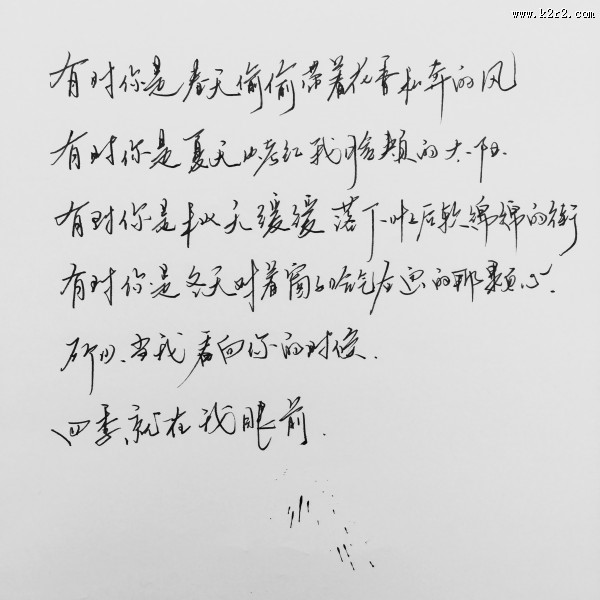 www.k2r2.com
有时你是春天偷偷带着花香私奔的风
有时你是夏天晒红我脸颊的太阳.
有时你是秋天缓缓落下叶后软绵绵的街
有时你是冬天对着窗的哈气后画的那颗心.
所以.当我看向你的时候.
四季就在我眼前.